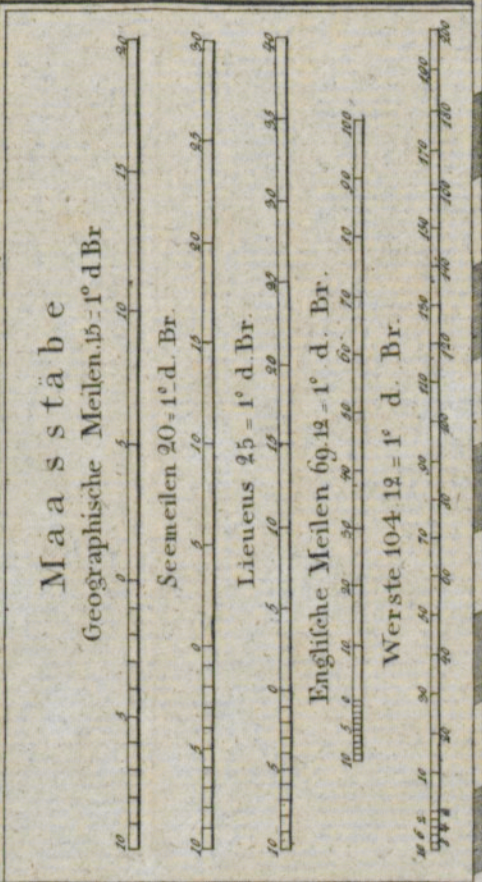 Maasstäbe
Geographische Meilen. 15 = 1° d Br
10 5 0 5 10 15 20
Seemeilen 20 = 1° d. Br.
10 5 0 5 10 15 20 25 30
Lieueus 25 = 1° d. Br.
10 5 0 5 10 15 20 25 30 35 40
Engliſche Meilen 69.12 = 1° d. Br.
10 5 0 10 20 30 40 50 60 70 80 90 100
Werste 104.12 = 1° d. Br.
10 6 2 10 20 30 40 50 60 70 80 90 100 110 120 130 140 150 160 170 180 190 200